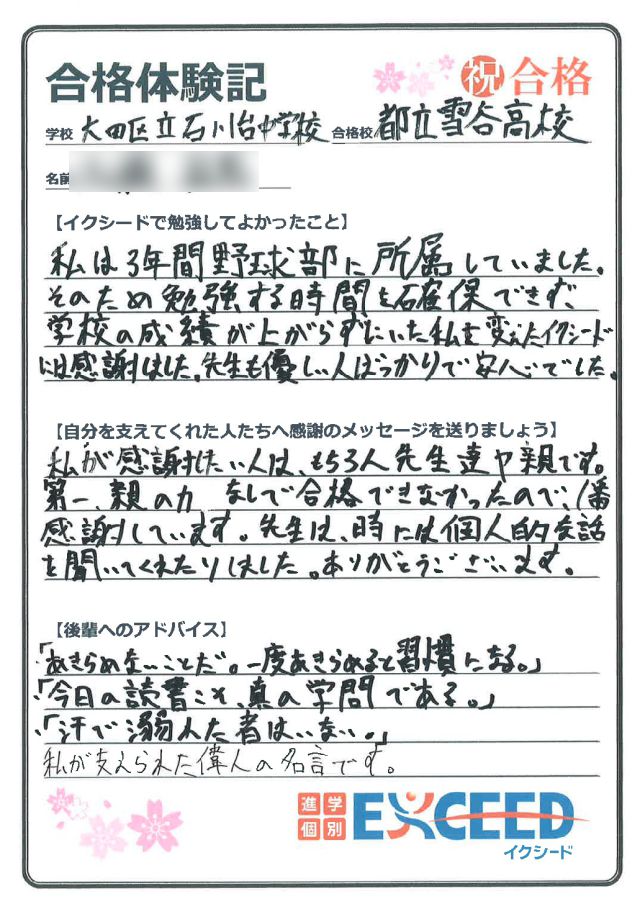 合格体験記
祝 合格
学校 大田区立石川台中学校 合格校 都立雪谷高校
名前
【イクシードで勉強してよかったこと】
私は3年間野球部に所属していました。
そのため勉強する時間を確保できず、
学校の成績が上がらずにいた私を変えたイクシード
には感謝しました。先生も優しい人ばっかりで安心でした。
【自分を支えてくれた人たちへ感謝のメッセージを送りましょう】
私が感謝したい人は、もちろん先生達や親です。
第一、親の力なしで合格できなかったので、1番
感謝しています。先生は、時には個人的な話
を聞いてくれたりしました。ありがとうございます。
【後輩へのアドバイス】
「あきらめないことだ。一度あきらめると習慣になる。」
「今日の読書こそ、真の学問である。」
「汗で溺れた者はいない。」
私が支えられた偉人の名言です。
進学
個別
EXCEED
イクシード